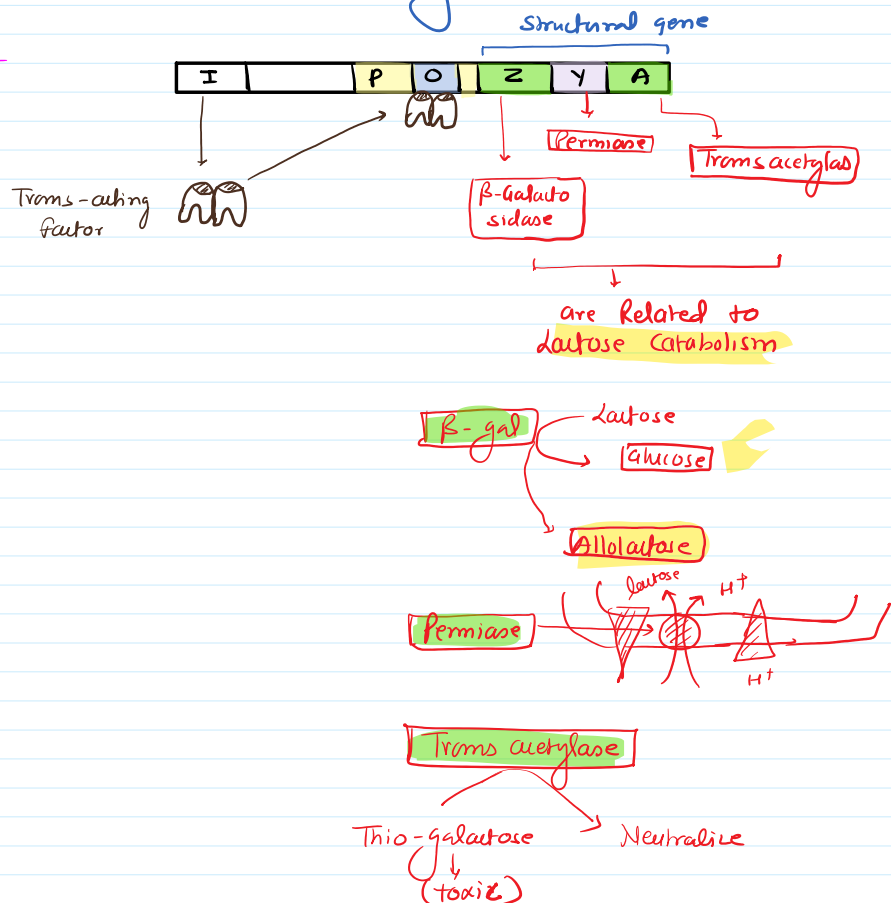 Structural gene
I P O Z Y A
Permiase
Transacetylas
Trans-acting
factor
β-Galacto
sidase
are Related to
Lactose Catabolism
β-gal
Lactose
Glucose
Allolactose
lactose
H+
Permiase
H+
Trans acetylase
Thio-galactose
Neutralize
(toxic)